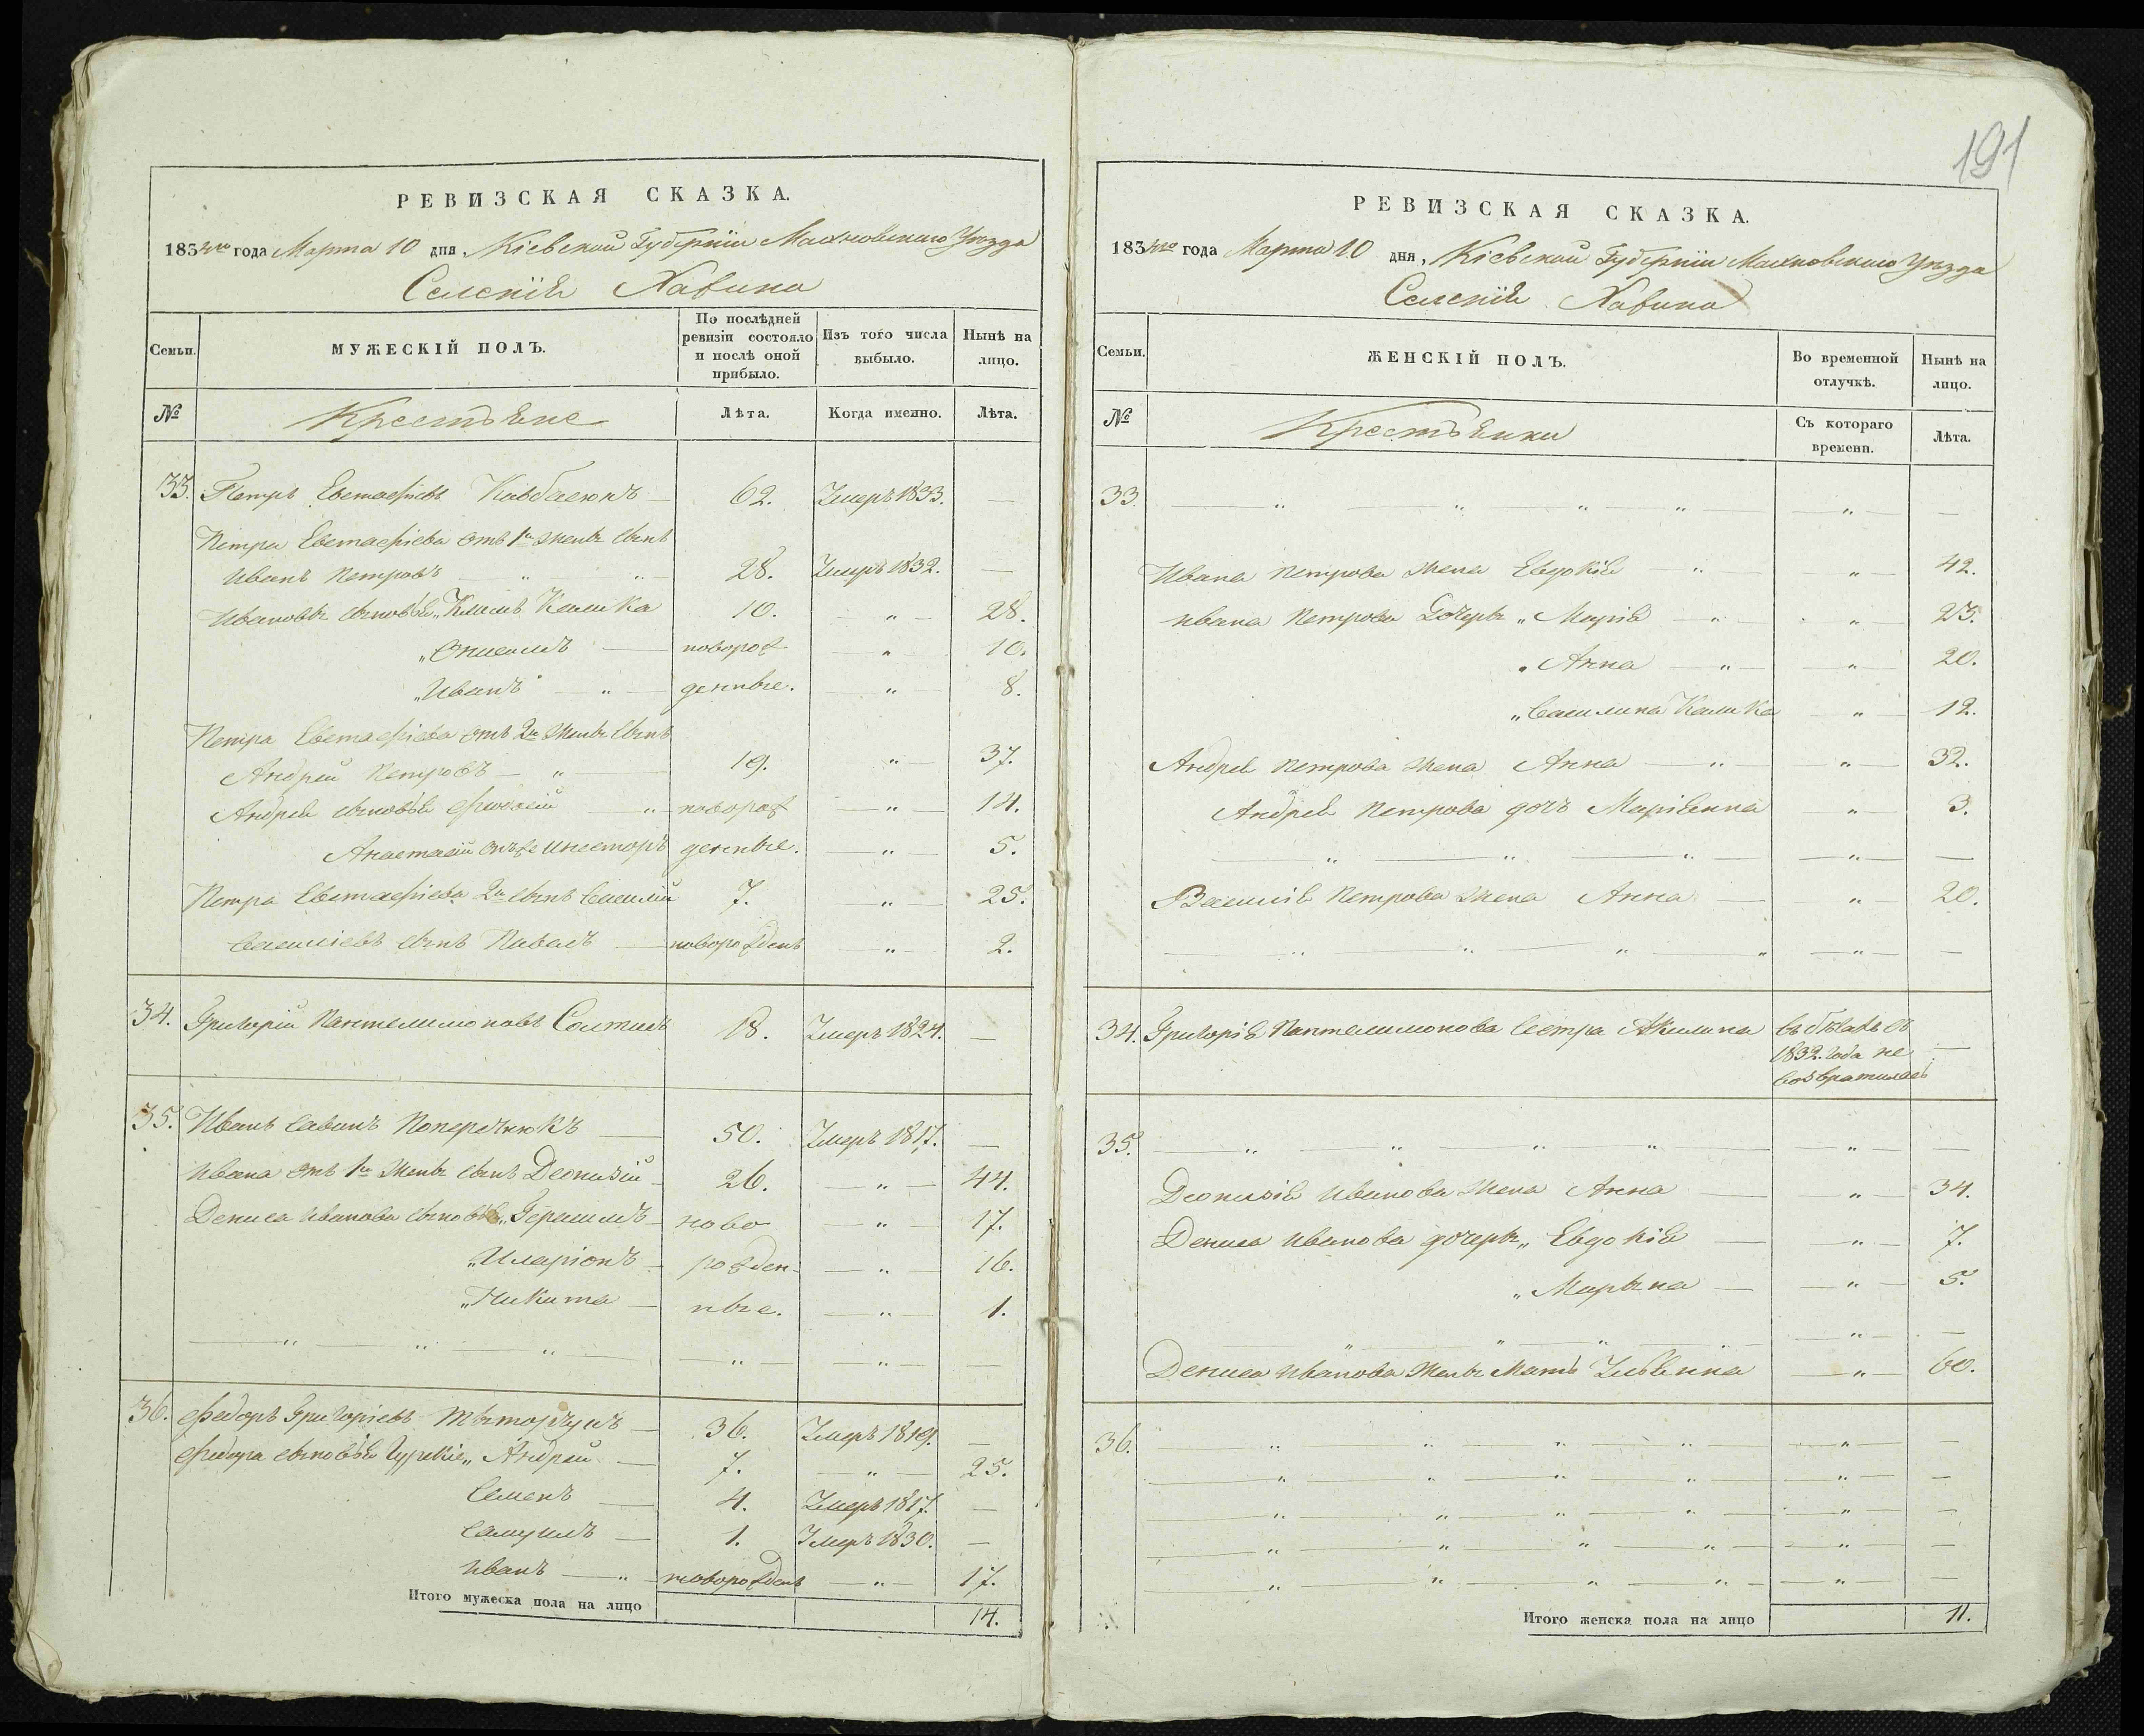 191
РЕВИЗСКАЯ СКАЗКА.
1834го года Марта 10 дня, Кіевской Губерніи Махновскаго Уѣзда
Селенія Хавина
Семьи. МУЖЕСКІЙ ПОЛЪ. По послѣдней ревизіи состояло и послѣ оной прибыло. Изъ того числа выбыло. Нынѣ на лицо.
№ Крестьяне Лѣта. Когда именно. Лѣта.
33. Петръ Евстафіевъ 62. Умеръ 1833. —
Петра Евстафіева отъ 1й жены сынъ
Иванъ Петровъ — „ — „ — 28. Умеръ 1832. —
Ивановы сыновья „ Климъ Калика 10. — „ — 28.
„ Онисимъ — поворож — „ — 10.
„ Иванъ — „ — денные. — „ — 8.
Петра Евстафіева отъ 2й жены сынъ
Андрей Петровъ — „ — 19. — „ — 37.
Андрея сыновья Феодосій — „ — новорож — „ — 14.
Анастасій онъ же Несторъ денные. — „ — 5.
Петра Евстафіева 2й сынъ Василій 7. — „ — 25.
Василіевъ сынъ Павелъ — новорожденъ — „ — 2.
34. Григорій Пантелимоновъ 18. Умеръ 1824. —
35. Иванъ Савинъ Поперечнюкъ — 50. Умеръ 1817. —
Ивана отъ 1й жены сынъ Деонизій — 26. — „ — 44.
Дениса Иванова сыновья „ Герасимъ — ново — „ — 17.
„ Иларіонъ — рожден — „ — 16.
„ Никита — ные. — „ — 1.
— „ — „ — „ — — „ — — „ — —
36. Федоръ Григоріевъ — 36. Умеръ 1819. —
Федора сыновья „ Андрей — 7. — „ — 25.
Семенъ — 4. Умеръ 1817. —
Самуилъ — 1. Умеръ 1830. —
Иванъ — „ — новорожденъ — „ — 17.
Итого мужеска пола на лицо 14.
РЕВИЗСКАЯ СКАЗКА.
1834го года Марта 10 дня, Кіевской Губерніи Махновскаго Уѣзда
Селенія Хавина
Семьи. ЖЕНСКІЙ ПОЛЪ. Во временной отлучкѣ. Нынѣ на лицо.
№ Крестьянки Съ котораго времени. Лѣта.
33. — „ — „ — „ — „ — — „ — —
Ивана Петрова жена Евдокія — „ — „ — 42.
Ивана Петрова дочери „ Марія — „ — „ — 23.
„ Анна — „ — — „ — 20.
„ Василина Калика — „ — 12.
Андрея Петрова жена Анна — „ — „ — 32.
Андрея Петрова дочь Маріянна — „ — 3.
— „ — „ — „ — — „ — —
Василія Петрова жена Анна — „ — 20.
— „ — „ — „ — „ — „ — —
34. Григорія Пантелимонова сестра Акилина въ бѣгахъ съ
1832 года не —
возвратилась
35. — „ — „ — „ — „ — — „ — —
Деонизія Иванова жена Анна — — „ — 34.
Дениса Иванова дочери „ Евдокія — — „ — 7.
„ Марына — — „ — 5.
— „ — „ — „ — — „ — —
Дениса Иванова жены мать Ульяна — „ — 60.
36. — „ — „ — „ — „ — — „ — —
— „ — „ — „ — „ — — „ — —
— „ — „ — „ — „ — — „ — —
— „ — „ — „ — „ — — „ — —
— „ — „ — „ — „ — — „ — —
Итого женска пола на лицо 11.